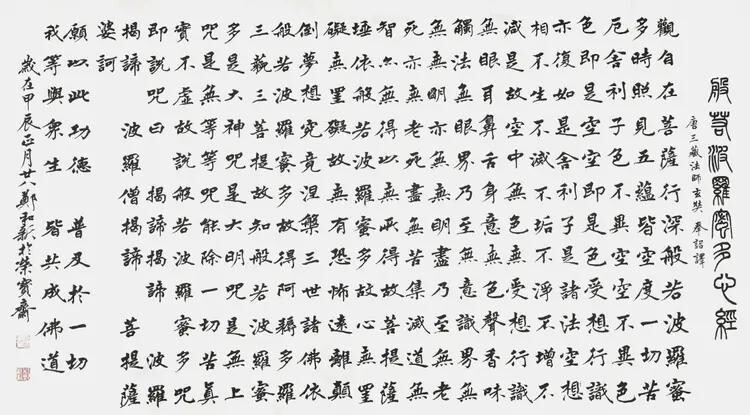 般若波羅蜜多心經
唐三藏法師玄奘 奉詔譯
觀自在菩薩行深般若波羅蜜
多時照見五蘊皆空度一切苦
厄舍利子色不異空空不異色
色即是空空即是色受想行識
亦復如是舍利子是諸法空想
相不生不滅不垢不淨不增不
減是故空中無色無受想行識
無眼耳鼻舌身意無色聲香味
觸法無眼界乃至無意識界無
無無明亦無無明盡乃至無老
死亦無老死盡無苦集滅道無
智亦無得以無所得故菩提薩
埵依般若波羅蜜多故心無罣
礙無罣礙故無有恐怖遠離顛
倒夢想究竟涅槃三世諸佛依
般若波羅蜜多故得阿耨多羅
三藐三菩提故知般若波羅蜜
多是大神咒是大明咒是無上
咒是無等等咒能除一切苦真
實不虛故說般若波羅蜜多咒
即說咒曰 揭諦揭諦 波羅
揭諦 波羅僧揭諦 菩提薩
婆訶
願以此功德 普及於一切
我等與眾生 皆共成佛道
歲在甲辰正月廿八鄭和新於榮寶齋